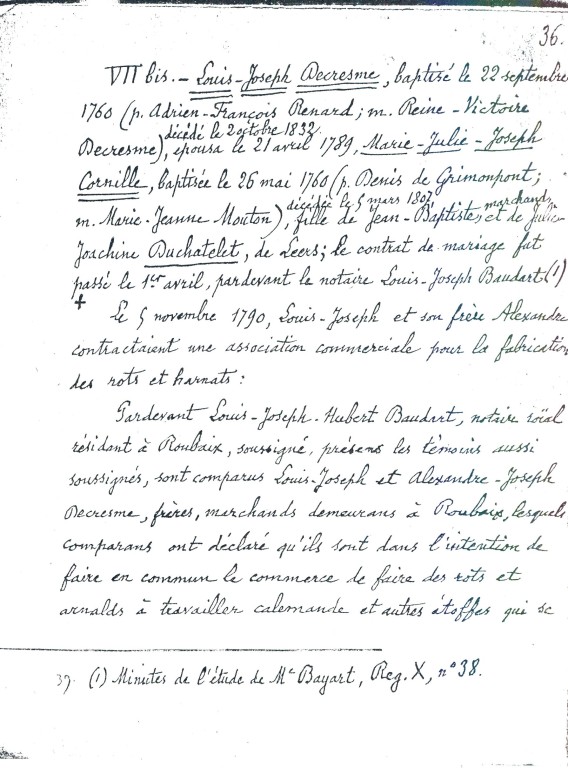 36.
VII bis. - Louis-Joseph Decresme, baptisé le 22 septembre
1760 (p. Adrien-François Renard; m. Reine-Victoire
décédé le 2 octobre 1832.
Decresme), épousa le 21 avril 1789, Marie-Julie-Joseph
Cornille, baptisée le 26 mai 1760 (p. Denis de Grimonpont;
décédée le 5 mars 1807 marchand,
m. Marie-Jeanne Mouton), fille de Jean-Baptiste, et de Julie-
Joachine Duchatelet, de Leers; le contrat de mariage fut
passé le 1er avril, pardevant le notaire Louis-Joseph Baudart (1)
+
Le 5 novembre 1790, Louis-Joseph et son frère Alexandre
contractaient une association commerciale pour la fabrication
des rots et harnats :
Pardevant Louis-Joseph-Hubert Baudart, notaire roïal
résidant à Roubaix, soussigné, présens les témoins aussi
soussignés, sont comparus Louis-Joseph et Alexandre-Joseph
Decresme, frères, marchands demeurans à Roubaix, lesquels
comparans ont déclaré qu'ils sont dans l'intention de
faire en commun le commerce de faire des rots et
arnalds à travailler calemande et autres étoffes qui se
37. (1) Minutes de l'étude de Me Bayart, Reg. X, n° 38.